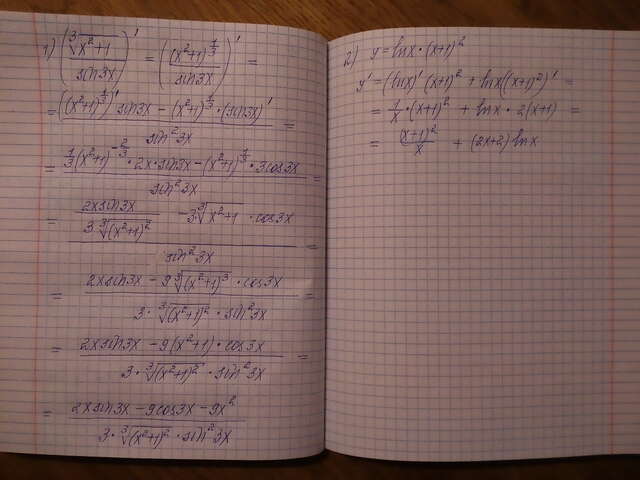 1) (∛(x²+1) / sin3x)' = ((x²+1)^(1/3) / sin3x)' =
= (((x²+1)^(1/3))' sin3x − (x²+1)^(1/3) · (sin3x)') / sin²3x =
= (1/3 (x²+1)^(−2/3) · 2x · sin3x − (x²+1)^(1/3) · 3cos3x) / sin²3x =
= (2x sin3x / (3·∛(x²+1)²) − 3∛(x²+1) · cos3x) / sin²3x =
= (2x sin3x − 9∛(x²+1)³ · cos3x) / (3 · ∛(x²+1)² · sin²3x) =
= (2x sin3x − 9(x²+1) · cos3x) / (3 · ∛(x²+1)² · sin²3x) =
= (2x sin3x − 9cos3x − 9x²) / (3 · ∛(x²+1)² · sin²3x)
2) y = lnx · (x+1)²
y' = (lnx)' (x+1)² + lnx((x+1)²)' =
= 1/x · (x+1)² + lnx · 2(x+1) =
= (x+1)²/x + (2x+2) lnx